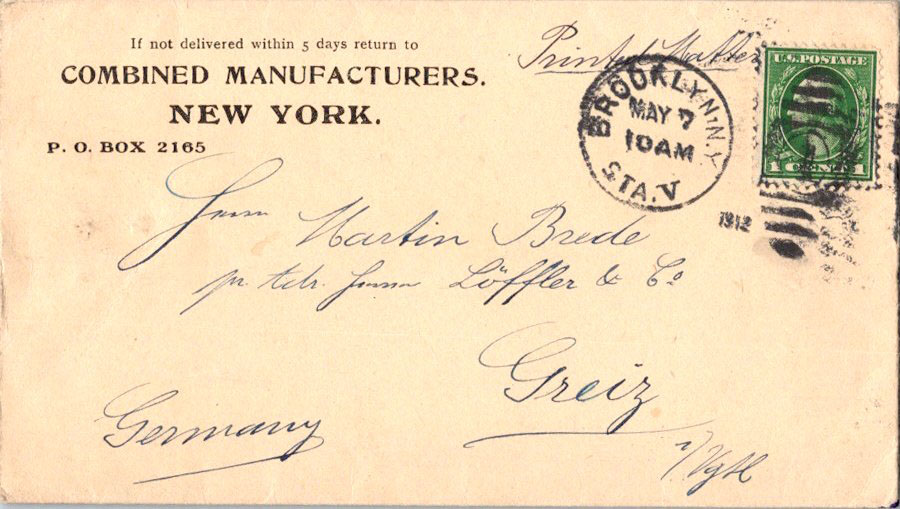 If not delivered within 5 days return to
COMBINED MANUFACTURERS.
NEW YORK.
P. O. BOX 2165
Printed Matter
BROOKLYN. N.Y
MAY 7
10AM
STA. V
1912
U.S. POSTAGE
1 CENT 1
Herrn Martin Brede
pr. Adr. Herren Löffler & Co
Greiz
i/Vgtl
Germany